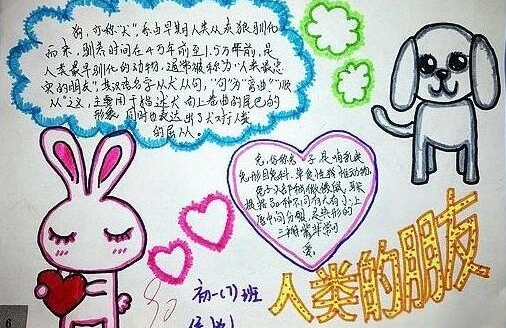 狗,亦称“犬”,系由早期人类从灰狼驯化
而来,驯养时间在4万年前至1.5万年前,是
人类最早驯化的动物,通常被称为“人类最忠
实的朋友”,其汉语名字从犬从句,“句”为“弯曲”“顺
从”之义,主要用于描述犬向上卷曲的尾巴的
形象,同时也表达出了犬对于人类
的屈从。
兔,俗称兔子是哺乳类
兔形目兔科,草食性
兔子
根据品种不同有大有小,上
唇中间分裂,是典型的
三瓣嘴非常可
爱。
人类的朋友
初一(7)班
6